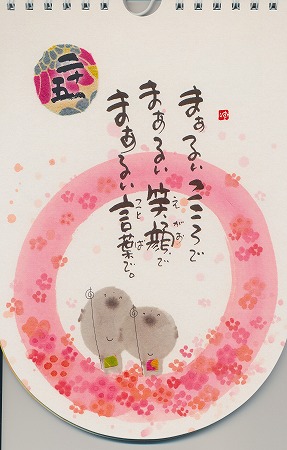 まぁるいこころで
まぁるい笑顔で
えがお
まぁるい言葉で。
ことば
二十五